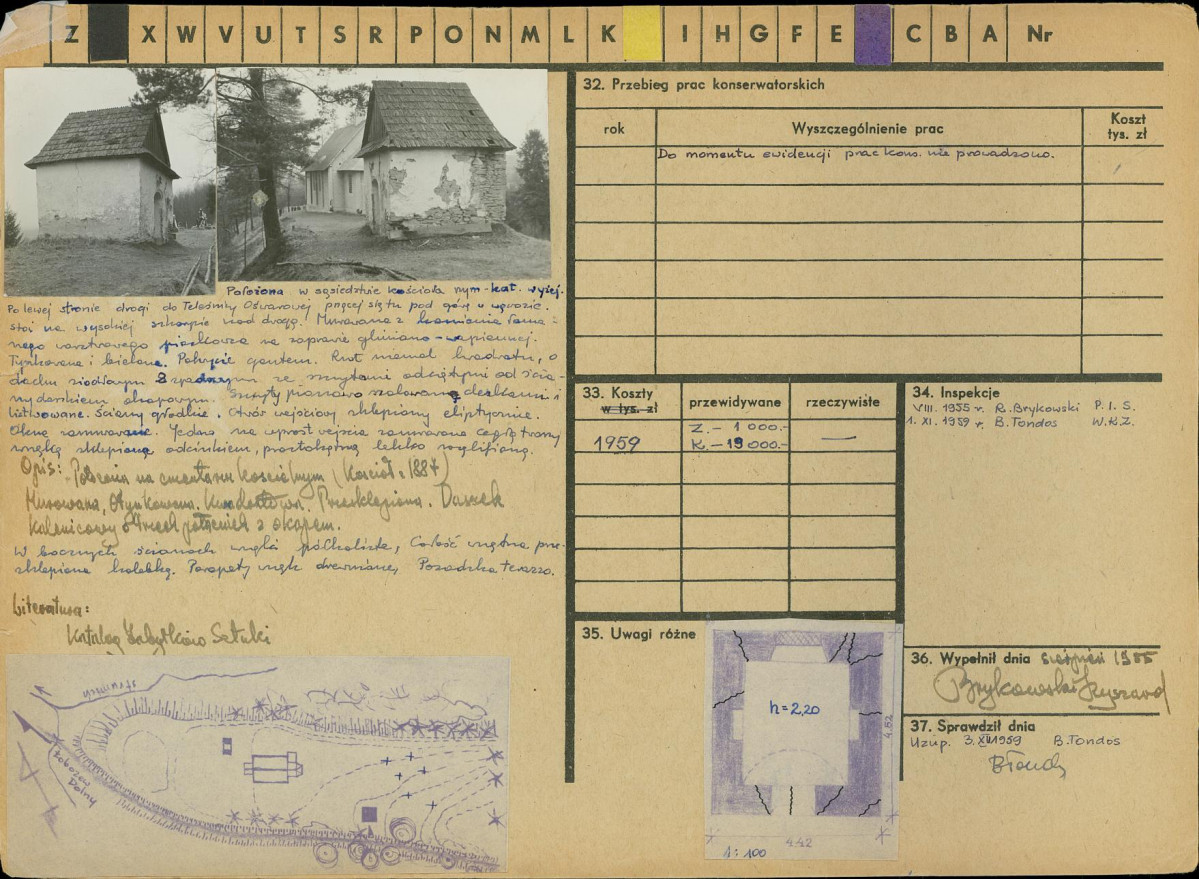 Z X W V U T S R P O N M L K I H G F E C B A Nr
Położona w sąsiedztwie kościoła rzym-kat. wyżej.
Po lewej stronie drogi do Teleśnicy Oszwarowej pnącej się tu pod górę w wąwozie.
stoi na wysokiej skarpie nad drogą. Murowana z kamienia łama-
nego warstwowego piaskowca na zaprawie gliniano-wapiennej.
Tynkowana i bielona. Pokrycie gontem. Rzut niemal kwadratu, o
dachu siodłowym 2 spadowym ze szczytami odciętymi od ścia-
ny daszkiem okapowym. Szczyty pionowo szalowane deskami i
listwowane. Ściany gładkie. Otwór wejściowy sklepiony eliptycznie.
Okna zamurowane. Jedno na wprost wejścia zamurowane cegłą tworzy
wnękę sklepioną odcinkiem, prostokątną lekko rozglifioną.
Opis: Położona na cmentarzu kościelnym (Kościół z 1884)
Murowana, Otynkowana. Kwadratowa. Przesklepiona. Daszek
kalenicowy o trzech połaciach z okapem.
W bocznych ścianach wnęki półkoliste, Całość wnętrza prze-
sklepiona kolebką. Parapety wnęk drewniane, Posadzka terazzo.
Literatura:
Katalog Zabytków Sztuki
strumień
Łobozew
Dolny
32. Przebieg prac konserwatorskich
rok Wyszczególnienie prac Koszt
tys. zł
Do momentu ewidencji prac kons. nie prowadzono.
33. Koszty
w tys. zł przewidywane rzeczywiste
1959 Z. – 1 000.-
K. – 19 000.- —
34. Inspekcje
VIII. 1955 r. R. Brykowski P. I. S.
1. XI. 1959 r. B. Tondos W.K.Z.
35. Uwagi różne
h=2,20
4.62
442
1:100
36. Wypełnił dnia sierpień 1955
Brykowski Ryszard
37. Sprawdził dnia
Uzup. 3.XII1959 B. Tondos
BTondos